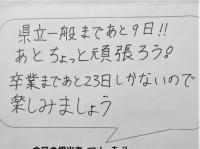 県立一般まであと9日!!
あとちょっと頑張ろう!
卒業まであと23日しかないので
楽しみましょう